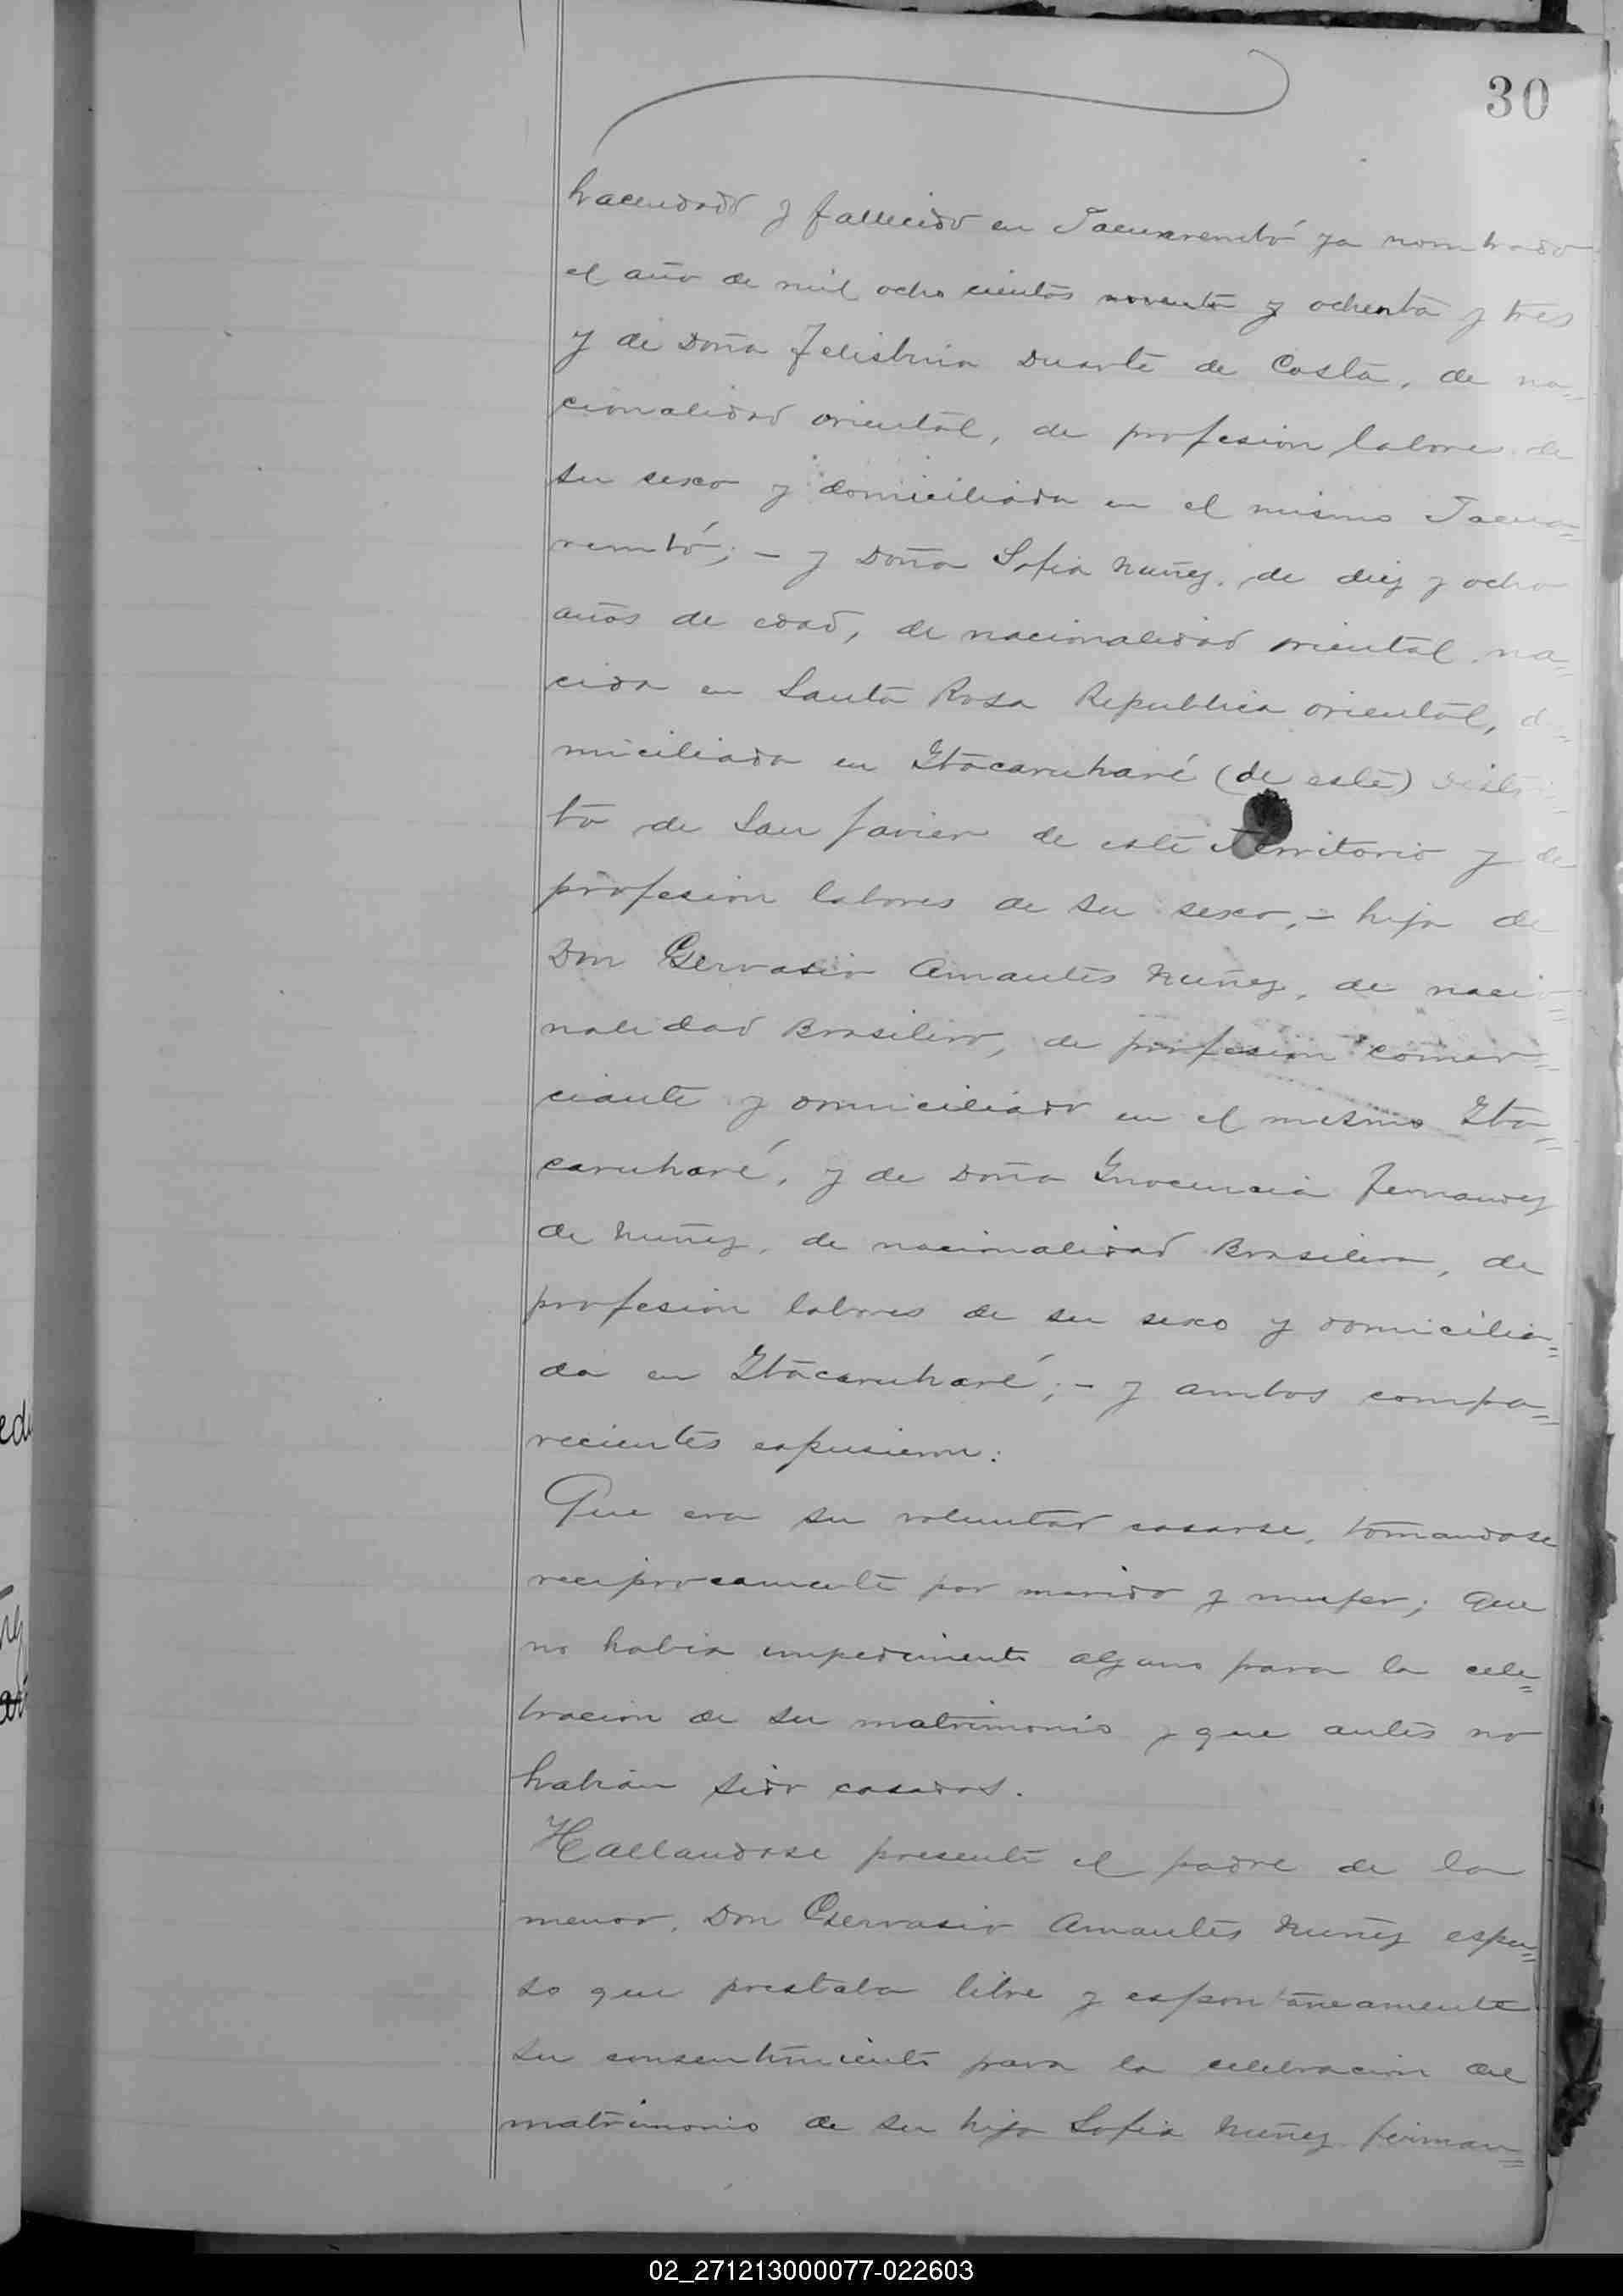 30
hacendado y fallecido en Tacuarembó ya nombrado
el año de mil ocho cientos noventa y ochenta y tres
y de Doña Felisbina Duarte de Costa, de na=
cionalidad oriental, de profesion labores de
su sexo y domiciliada en el mismo Tacua=
rembó; - y Doña Sofia Nuñez, de diez y ocho
años de edad, de nacionalidad oriental, na=
cida en Santa Rosa Republica oriental, do=
miciliada en Ytacaruharé (de este) Distri=
to de San Javier de este Territorio y de
profesion labores de su sexo, - hija de
Don Gervasio Amantes Nuñez, de nacio=
nalidad Brasilero, de profesion comer=
ciante y domiciliado en el mismo Yta=
caruharé, y de Doña Ynocencia Fernandez
de Nuñez, de nacionalidad Brasilera, de
profesion labores de su sexo y domicilia=
da en Ytacaruharé; - y ambos compa=
recientes espusieron:
Que era su voluntad casarse, tomandose
reciprocamente por marido y mujer; que
no habia impedimento alguno para la cele=
bracion de su matrimonio y que antes no
habian sido casados.
Hallandose presente el padre de la
menor, Don Gervasio Amantes Nuñez espu=
so que prestaba libre y espontaneamente
su consentimiento para la celebracion del
matrimonio de su hija Sofia Nuñez firman=
02_271213000077-022603